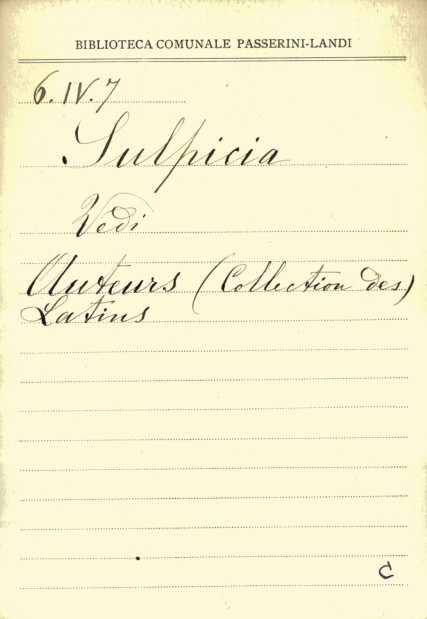 BIBLIOTECA COMUNALE PASSERINI-LANDI
6.IV.7
Sulpicia
Vedi
Auteurs (Collection des)
Latins
C